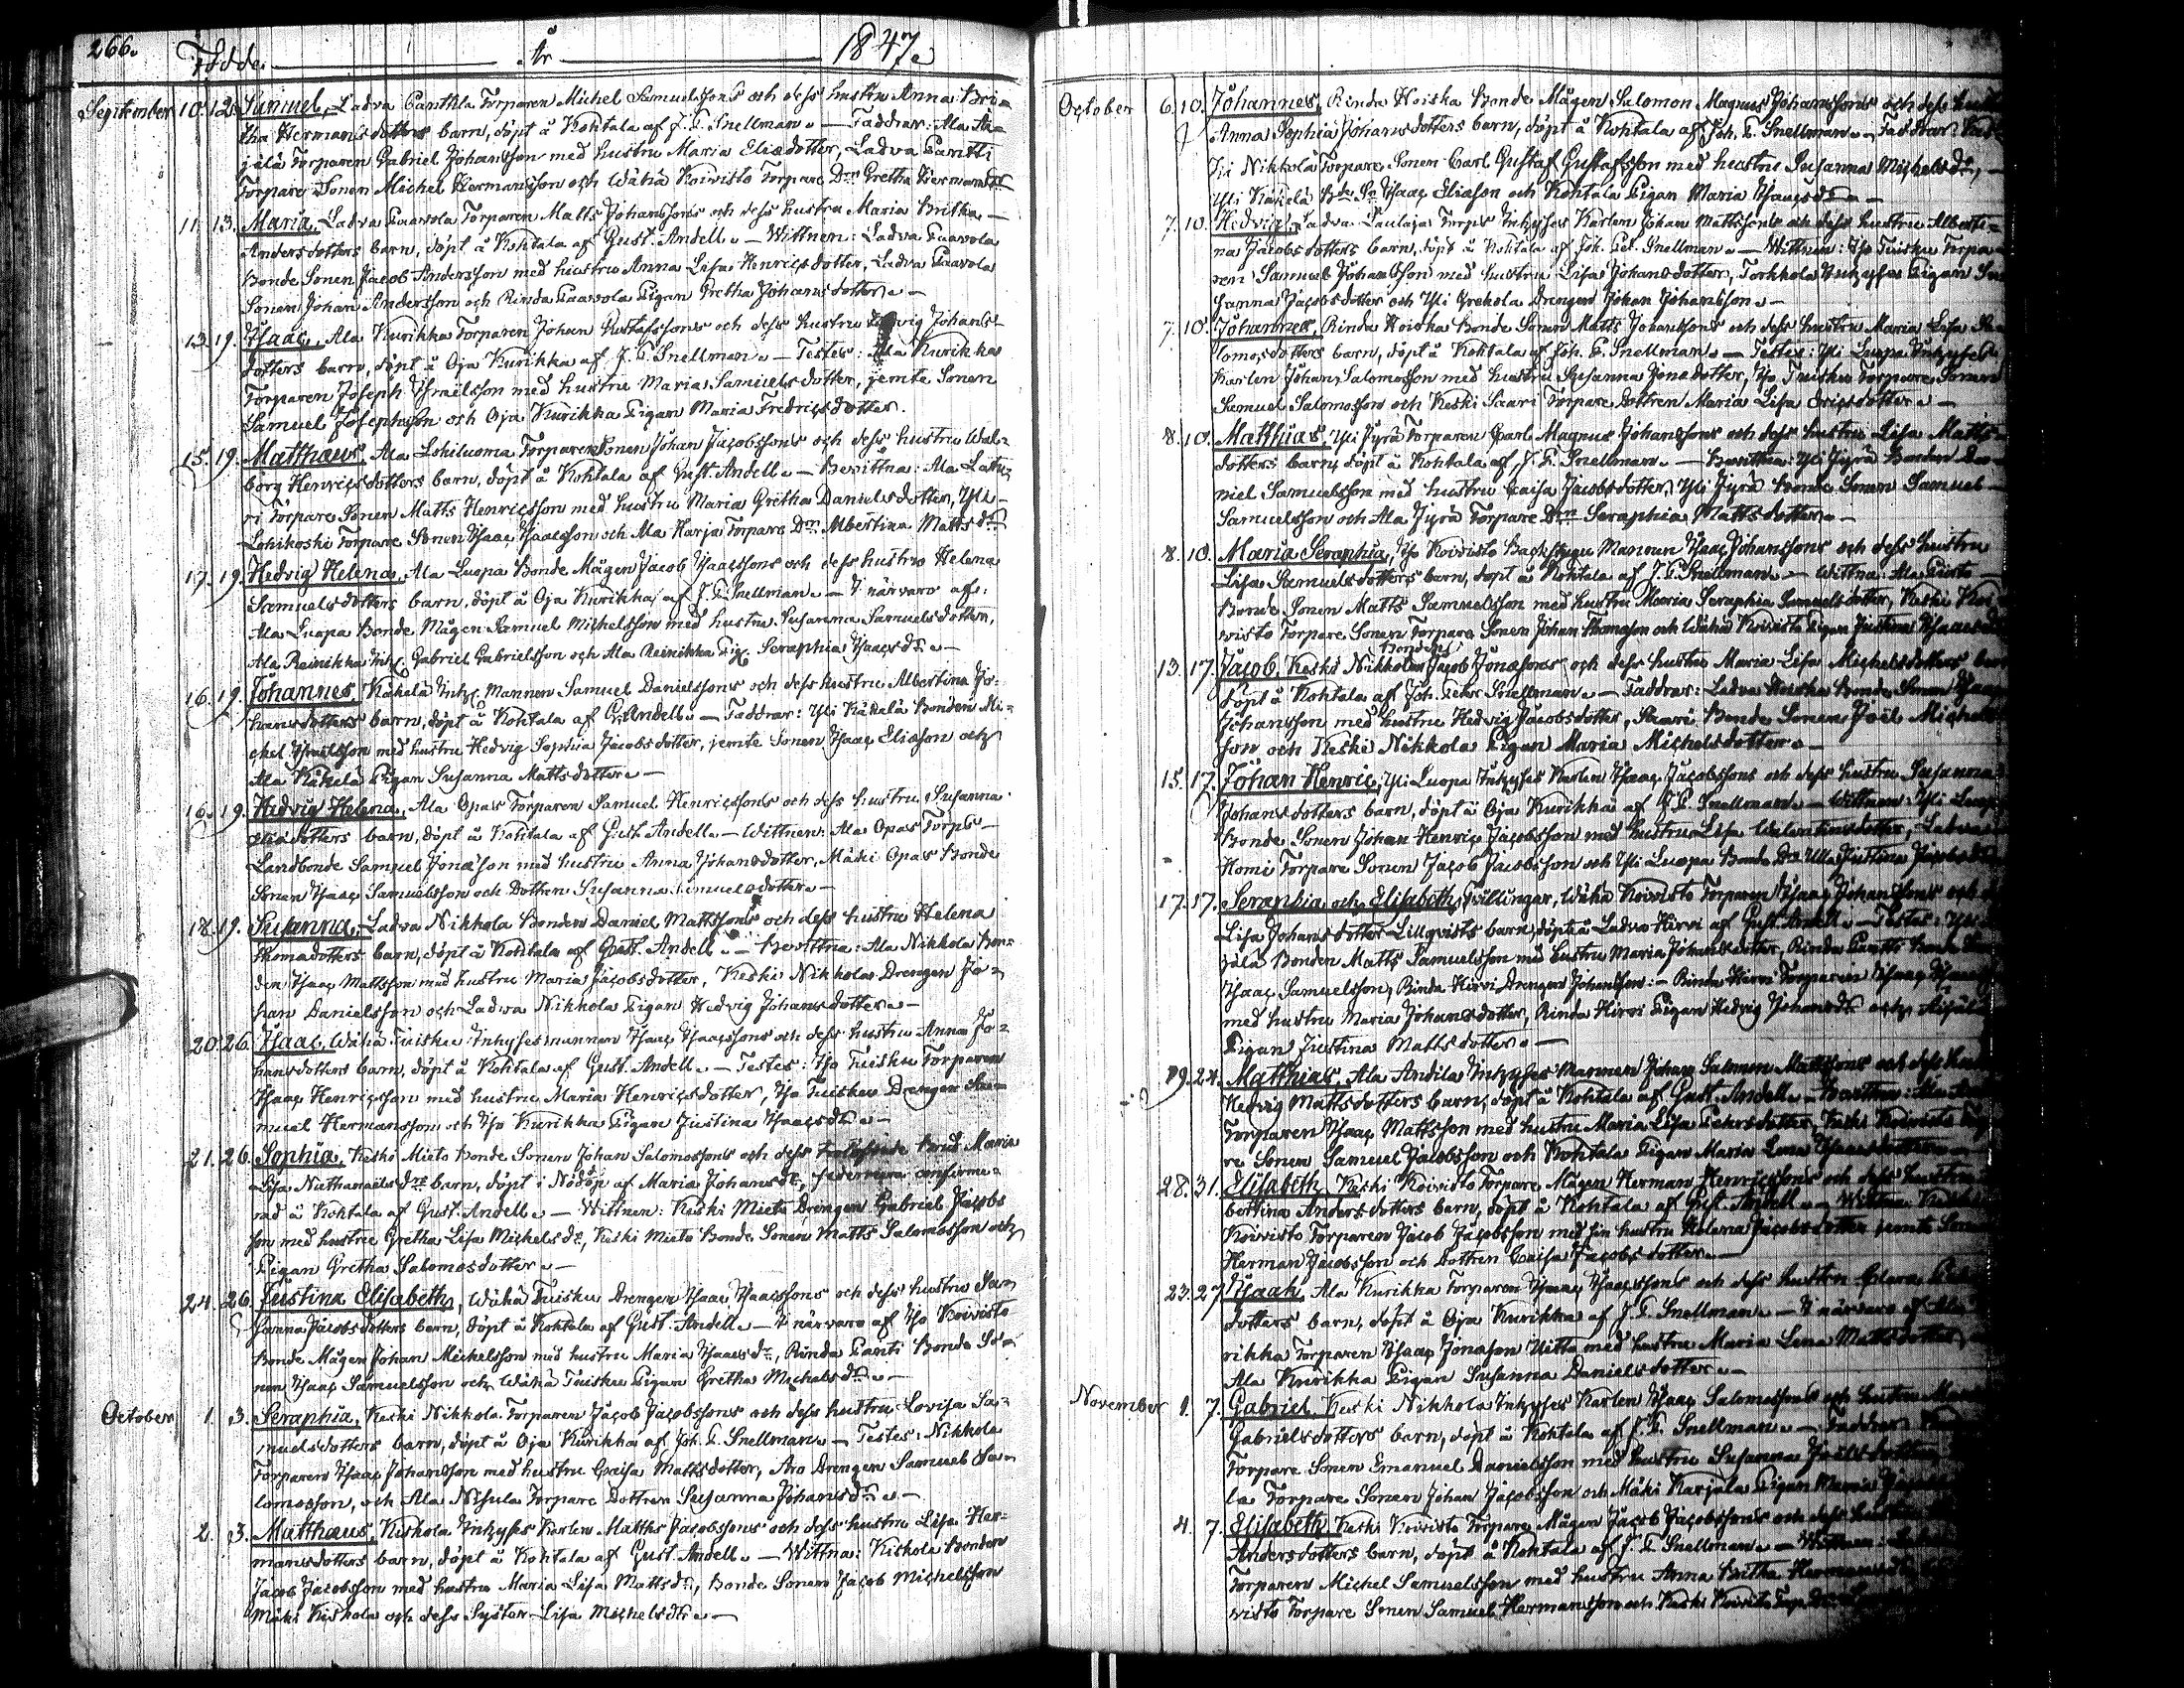 266.
Födde. År 1847.
September 10. 12. Samuel, Ladva Panttila Torparen Michel Samuelssons och dess hustru Anna Bri-
tha Hermansdotters barn, döpt å Kohtala af J. P. Snellman. — Faddrar: Ala
jälä Torparen Gabriel Johansson med hustru Maria Eliædotter, Ladva Pantti
Torpare Sonen Michel Hermansson och Wähä Koivisto Torpare Dr Gretha Hermansdr
11. 13. Maria, Ladva Paavola Torparen Matts Johanssons och dess hustru Maria Britha
Andersdotters barn, döpt å Kohtala af Gust. Andell. — Wittnen: Ladva Paavola
Bonde Sonen Jacob Andersson med hustru Anna Lisa Henricsdotter, Ladva Paavola
Sonen Johan Andersson och Rinda Paavola Pigan Gretha Johansdotter. —
13. 19. Isaac, Ala Kurikka Torparen Johan Gustafssons och dess hustru Hedvig Johans-
dotters barn, döpt å Oja Kurikka af J. P. Snellman. — Testes: Ala Kurikka
Torparen Joseph Israelsson med hustru Maria Samuelsdotter, jemte Sonen
Samuel Josephsson och Oja Kurikka Pigan Maria Fredricsdotter.
15. 19. Matthæus, Ala Lohiluoma Torpare Sonen Johan Jacobssons och dess hustru Wal-
borg Henricsdotters barn, döpt å Kohtala af Gust. Andell. — Bevittna: Ala
ri Torpare Sonen Matts Henricsson med hustru Maria Gretha Danielsdotter, Yli
Lohikoski Torpare Sonen Isaac Isaacsson och Ala Harja Torpare Dr Albertina Mattsdr
17. 19. Hedvig Helena, Ala Luopa Bonde Mågen Jacob Isaacssons och dess hustru Helena
Samuelsdotters barn, döpt å Oja Kurikka af J. P. Snellman. — I närvaro af:
Ala Luopa Bonde Mågen Samuel Michelsson med hustru Susanna Samuelsdotter,
Ala Reinikka Inh. Gabriel Gabrielsson och Ala Reinikka Pig. Seraphia Isaacsdr. —
16. 19. Johannes, Käkelä Inh. Mannen Samuel Danielssons och dess hustru Albertina Jo-
hansdotters barn, döpt å Kohtala af G. Andell. — Faddrar: Yli Käkelä Bonden Mi-
chel Israelsson med hustru Hedvig Sophia Jacobsdotter, jemte Sonen Isaac Eliæson och
Ala Käkelä Pigan Susanna Mattsdotter. —
16. 19. Hedvig Helena, Ala Opas Torparen Samuel Henricssons och dess hustru Susanna
Eliædotters barn, döpt å Kohtala af Gust. Andell. — Wittnen: Ala Opas Torps
Landbonde Samuel Jonæson med hustru Anna Johansdotter, Mäki Opas Bonde
Sonen Isaac Samuelsson och Dottren Susanna Samuelsdotter. —
18. 19. Susanna, Ladva Nikkola Bonden Daniel Mattssons och dess hustru Helena
Thomædotters barn, döpt å Kohtala af Gust. Andell. — Bevittna: Ala Nikkola Bon-
den Isaac Mattsson med hustru Maria Jacobsdotter, Keski Nikkola Drengen Jo-
han Danielsson och Ladva Nikkola Pigan Hedvig Johansdotter. —
20. 26. Isaac, Wähä Tuisku Inhyses mannen Isaac Isaacssons och dess hustru Anna Jo-
hansdotters barn, döpt å Kohtala af Gust. Andell. — Testes: Iso Tuisku Torparen
Isaac Henricsson med hustru Maria Henricsdotter, Iso Tuisku Drengen Sa-
muel Hermansson och Iso Kurikka Pigan Justina Isaacsdr. —
21. 26. Sophia, Keski Mieto Bonde Sonen Johan Salomossons och dess Brud Maria
Lisa Nathanaelsdrs barn, döpt i Nöddop af Maria Johansdr, sedermera confirme-
rad å Kohtala af Gust. Andell. — Wittnen: Keski Mieto Drengen Gabriel Jacobs
son med hustru Gretha Lisa Michelsdr, Keski Mieto Bonde Sonen Matts Salomosson och
Pigan Gretha Salomosdotter. —
24. 26. Justina Elisabeth, Wähä Tuisku Drengen Isaac Isaacssons och dess hustru Su-
sanna Jacobsdotters barn, döpt å Kohtala af Gust. Andell. — I närvaro af Iso Koivisto
Bonde Mågen Johan Michelsson med hustru Maria Isaacsdr, Rinda Pantti Bonde So-
nen Isaac Samuelsson och Wähä Tuisku Pigan Gretha Michelsdr. —
October 1. 3. Seraphia, Keski Nikkola Torparen Jacob Jacobssons och dess hustru Lovisa Sa-
muelsdotters barn, döpt å Oja Kurikka af Joh. P. Snellman. — Testes: Nikkola
Torparen Isaac Johansson med hustru Caisa Mattsdotter, Aro Drengen Samuel Sa-
lomosson, och Ala Nisula Torpare Dottren Susanna Johansdr. —
2. 3. Matthæus, Kiskola Inhyses Karlen Matths Jacobssons och dess hustru Lisa Her-
mansdotters barn, döpt å Kohtala af Gust. Andell. — Wittna: Kiskola Bonden
Jacob Jacobsson med hustru Maria Lisa Mattsdr, Bonde Sonen Jacob Michelsson
Mäki Kiskola och dess Syster Lisa Michelsdr. —
October 6. 10. Johannes, Rinda Hoiska Bonde Mågen Salomon Magnus Johanssons och dess
Anna Sophia Johansdotters barn, döpt å Kohtala af Joh. P. Snellman. — Faddrar:
Nikkola Torpare Sonen Carl Gustaf Gustafsson med hustru Susanna Michelsdr,
Yli Käkelä Isaac Eliæson och Kohtala Pigan Maria Isaacsdr. —
7. 10. Hedvig, Ladva Laulaja Torps Inhyses Karlen Johan Mattssons och dess hustru Alberti-
na Jacobsdotters barn, döpt å Kohtala af Joh. Pet. Snellman. — Wittnen: Iso Tuisku Torpa-
ren Samuel Johansson med hustru Lisa Johansdotter, Torkkola Inhyses Pigan Su
sanna Jacobsdotter och Yli Grekola Drengen Johan Johansson. —
7. 10. Johannes, Rinda Hoiska Bonde Sonen Matts Johanssons och dess hustru Maria Lisa
lomosdotters barn, döpt å Kohtala af Joh. P. Snellman. — Testes: Yli Luopa Inhyses
Karlen Johan Salomosson med hustru Susanna Jonædotter, Iso Tuisku Torpare Sonen
Samuel Salomosson och Keski Saari Torpare Dottren Maria Lisa Ericsdotter. —
8. 10. Matthias, Yli Jyrä Torparen Carl Magnus Johanssons och dess hustru Lisa Matts-
dotters barn, döpt å Kohtala af J. P. Snellman. — Bevittna: Yli Jyrä Bonden Da-
niel Samuelsson med hustru Caisa Jacobsdotter, Yli Jyrä Bonde Sonen Samuel
Samuelsson och Ala Jyrä Torpare Drn Seraphia Mattsdotter. —
8. 10. Maria Seraphia, Iso Koivisto Backstugu Mannen Isaac Johanssons och dess hustru
Lisa Samuelsdotters barn, döpt å Kohtala af J. P. Snellman. — Wittna: Ala
Bonde Sonen Matts Samuelsson med hustru Maria Seraphia Samuelsdotter, Keski Koi
visto Torpare Sonen Torpare Sonen Johan Thomæson och Wähä Koivisto Pigan Justina
Bonden
13. 17. Jacob, Keski Nikkola Jacob Jonæsons och dess hustru Maria Lisa Michelsdotters
döpt å Kohtala af Joh. Peter Snellman. — Faddrar: Ladva Hoiska Bonde Sonen Isaac
Johansson med hustru Hedvig Jacobsdotter, Saari Bonde Sonen Joël Michels
son och Keski Nikkola Pigan Maria Michelsdotter. —
15. 17. Johan Henric, Yli Luopa Inhyses Karlen Isaac Jacobssons och dess hustru Susanna
Johansdotters barn, döpt å Oja Kurikka af J. P. Snellman. — Wittnen: Yli
Bonde Sonen Johan Henric Jacobsson med hustru Lisa Walentinsdotter, Ladva
Homi Torpare Sonen Jacob Jacobsson och Yli Luopa Bonde Dr Justina
17. 17. Seraphia och Elisabeth, Tvillingar, Wähä Koivisto Torparen Isaac Johanssons och
Lisa Johansdotter Lillqvists barn, döpta å Ladva Hirvi af Gust. Andell. — Testes:
jälä Bonden Matts Samuelsson med hustru Maria Johansdotter, Rinda Pantti Bonde
Isaac Samuelsson, Rinda Hirvi Drengen Johansson: — Rinda Hirvi Torparen Isaac
med hustru Maria Johansdotter, Rinda Hirvi Pigan Hedvig Johansdr och
Pigan Justina Mattsdotter. —
19. 24. Matthias, Ala Andila Inhyses Mannen Johan Salomon Mattssons och dess
Hedvig Mattsdotters barn, döpt å Kohtala af Gust. Andell. — Bevittna: Ala
Torparen Isaac Mattsson med hustru Maria Lisa Pehrsdotter, Keski Koivisto
re Sonen Samuel Jacobsson och Kohtala Pigan Maria Lena
28. 31. Elisabeth, Keski Koivisto Torpare Mågen Herman Henricssons och dess hustru
bertina Andersdotters barn, döpt å Kohtala af Gust. Andell. — Wittna:
Koivisto Torparen Jacob Jacobsson med sin hustru Helena Jacobsdotter jemte Sonen
Herman Jacobsson och Dottren Caisa Jacobsdotter. —
23. 27. Isaak, Ala Kurikka Torparen Isaac Isaacssons och dess hustru
dotters barn, döpt å Oja Kurikka af J. P. Snellman. — I närvaro af
rikka Torparen Isaac Jonæson Uitto med hustru Maria Lena Mattsdotter,
Ala Kurikka Pigan Susanna Danielsdotter. —
November 1. 7. Gabriel, Keski Nikkola Inhyses Karlen Isaac Salomossons och hustru
Gabrielsdotters barn, döpt å Kohtala af J. P. Snellman. — Faddrar:
Torpare Sonen Emanuel Danielsson med hustru Susanna Joëlsdotter,
la Torpare Sonen Johan Jacobsson och Mäki Karjala Pigan Maria
4. 7. Elisabeth, Keski Koivisto Torpare Mågen Jacob Jacobssons och dess
Andersdotters barn, döpt å Kohtala af J. P. Snellman. — Wittnen:
Torparen Michel Samuelsson med hustru Anna Britha
visto Torpare Sonen Samuel Hermansson och Keski Koivisto